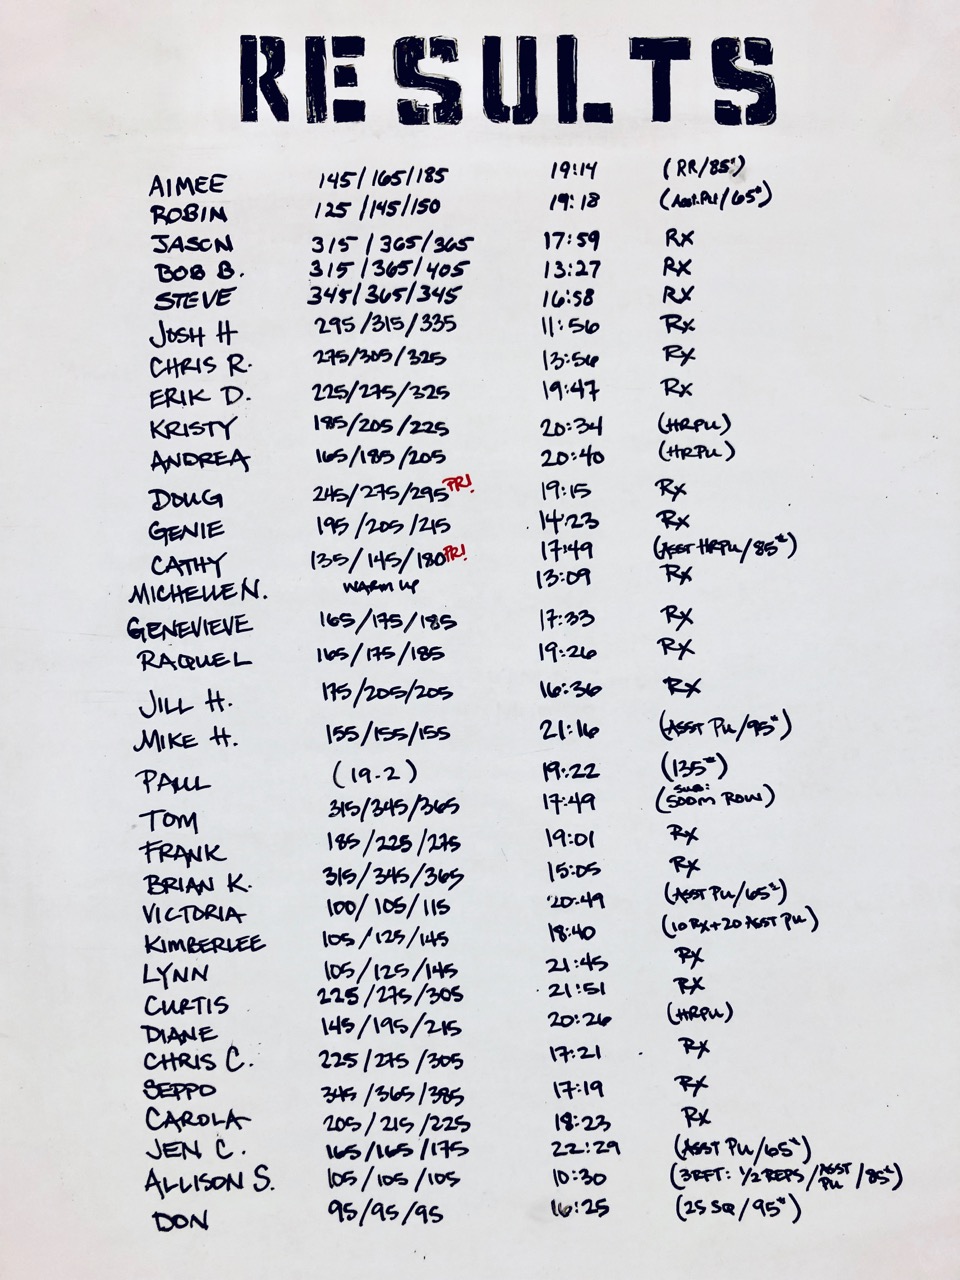 RESULTS
AIMEE 145/165/185 19:14 (RR/85#)
ROBIN 125/145/150 19:18 (Asst.PU/65#)
JASON 315/365/365 17:59 Rx
BOB B. 315/365/405 13:27 Rx
STEVE 345/365/345 16:58 Rx
JOSH H 295/315/335 11:56 Rx
CHRIS R. 275/305/325 13:56 Rx
ERIK D. 225/275/325 19:47 Rx
KRISTY 185/205/225 20:34 (HRPU)
ANDREA 165/185/205 20:40 (HRPU)
DOUG 245/275/295 PR! 19:15 Rx
GENIE 195/205/215 14:23 Rx
CATHY 135/145/180 PR! 17:49 (ASST HRPU/85#)
MICHELLE N. WARM UP 13:09 Rx
GENEVIEVE 165/175/185 17:33 Rx
RAQUEL 165/175/185 19:26 Rx
JILL H. 175/205/205 16:36 Rx
MIKE H. 155/155/155 21:16 (ASST PU/95#)
PAUL (19.2) 19:22 (135#)
TOM 315/345/365 17:49 (SUB: 500M ROW)
FRANK 185/225/275 19:01 Rx
BRIAN K. 315/345/365 15:05 Rx
VICTORIA 100/105/115 20:49 (ASST PU/65#)
KIMBERLEE 105/125/145 18:40 (10 Rx+20 ASST PU)
LYNN 105/125/145 21:45 Rx
CURTIS 225/275/305 21:51 Rx
DIANE 145/195/215 20:26 (HRPU)
CHRIS C. 225/275/305 17:21 Rx
SEPPO 345/365/385 17:19 Rx
CAROLA 205/215/225 18:23 Rx
JEN C. 165/165/175 22:29 (ASST PU/65#)
ALLISON S. 105/105/105 10:30 (3RFT: 1/2 REPS/ASST PU/85#)
DON 95/95/95 16:25 (25 SQ/95#)